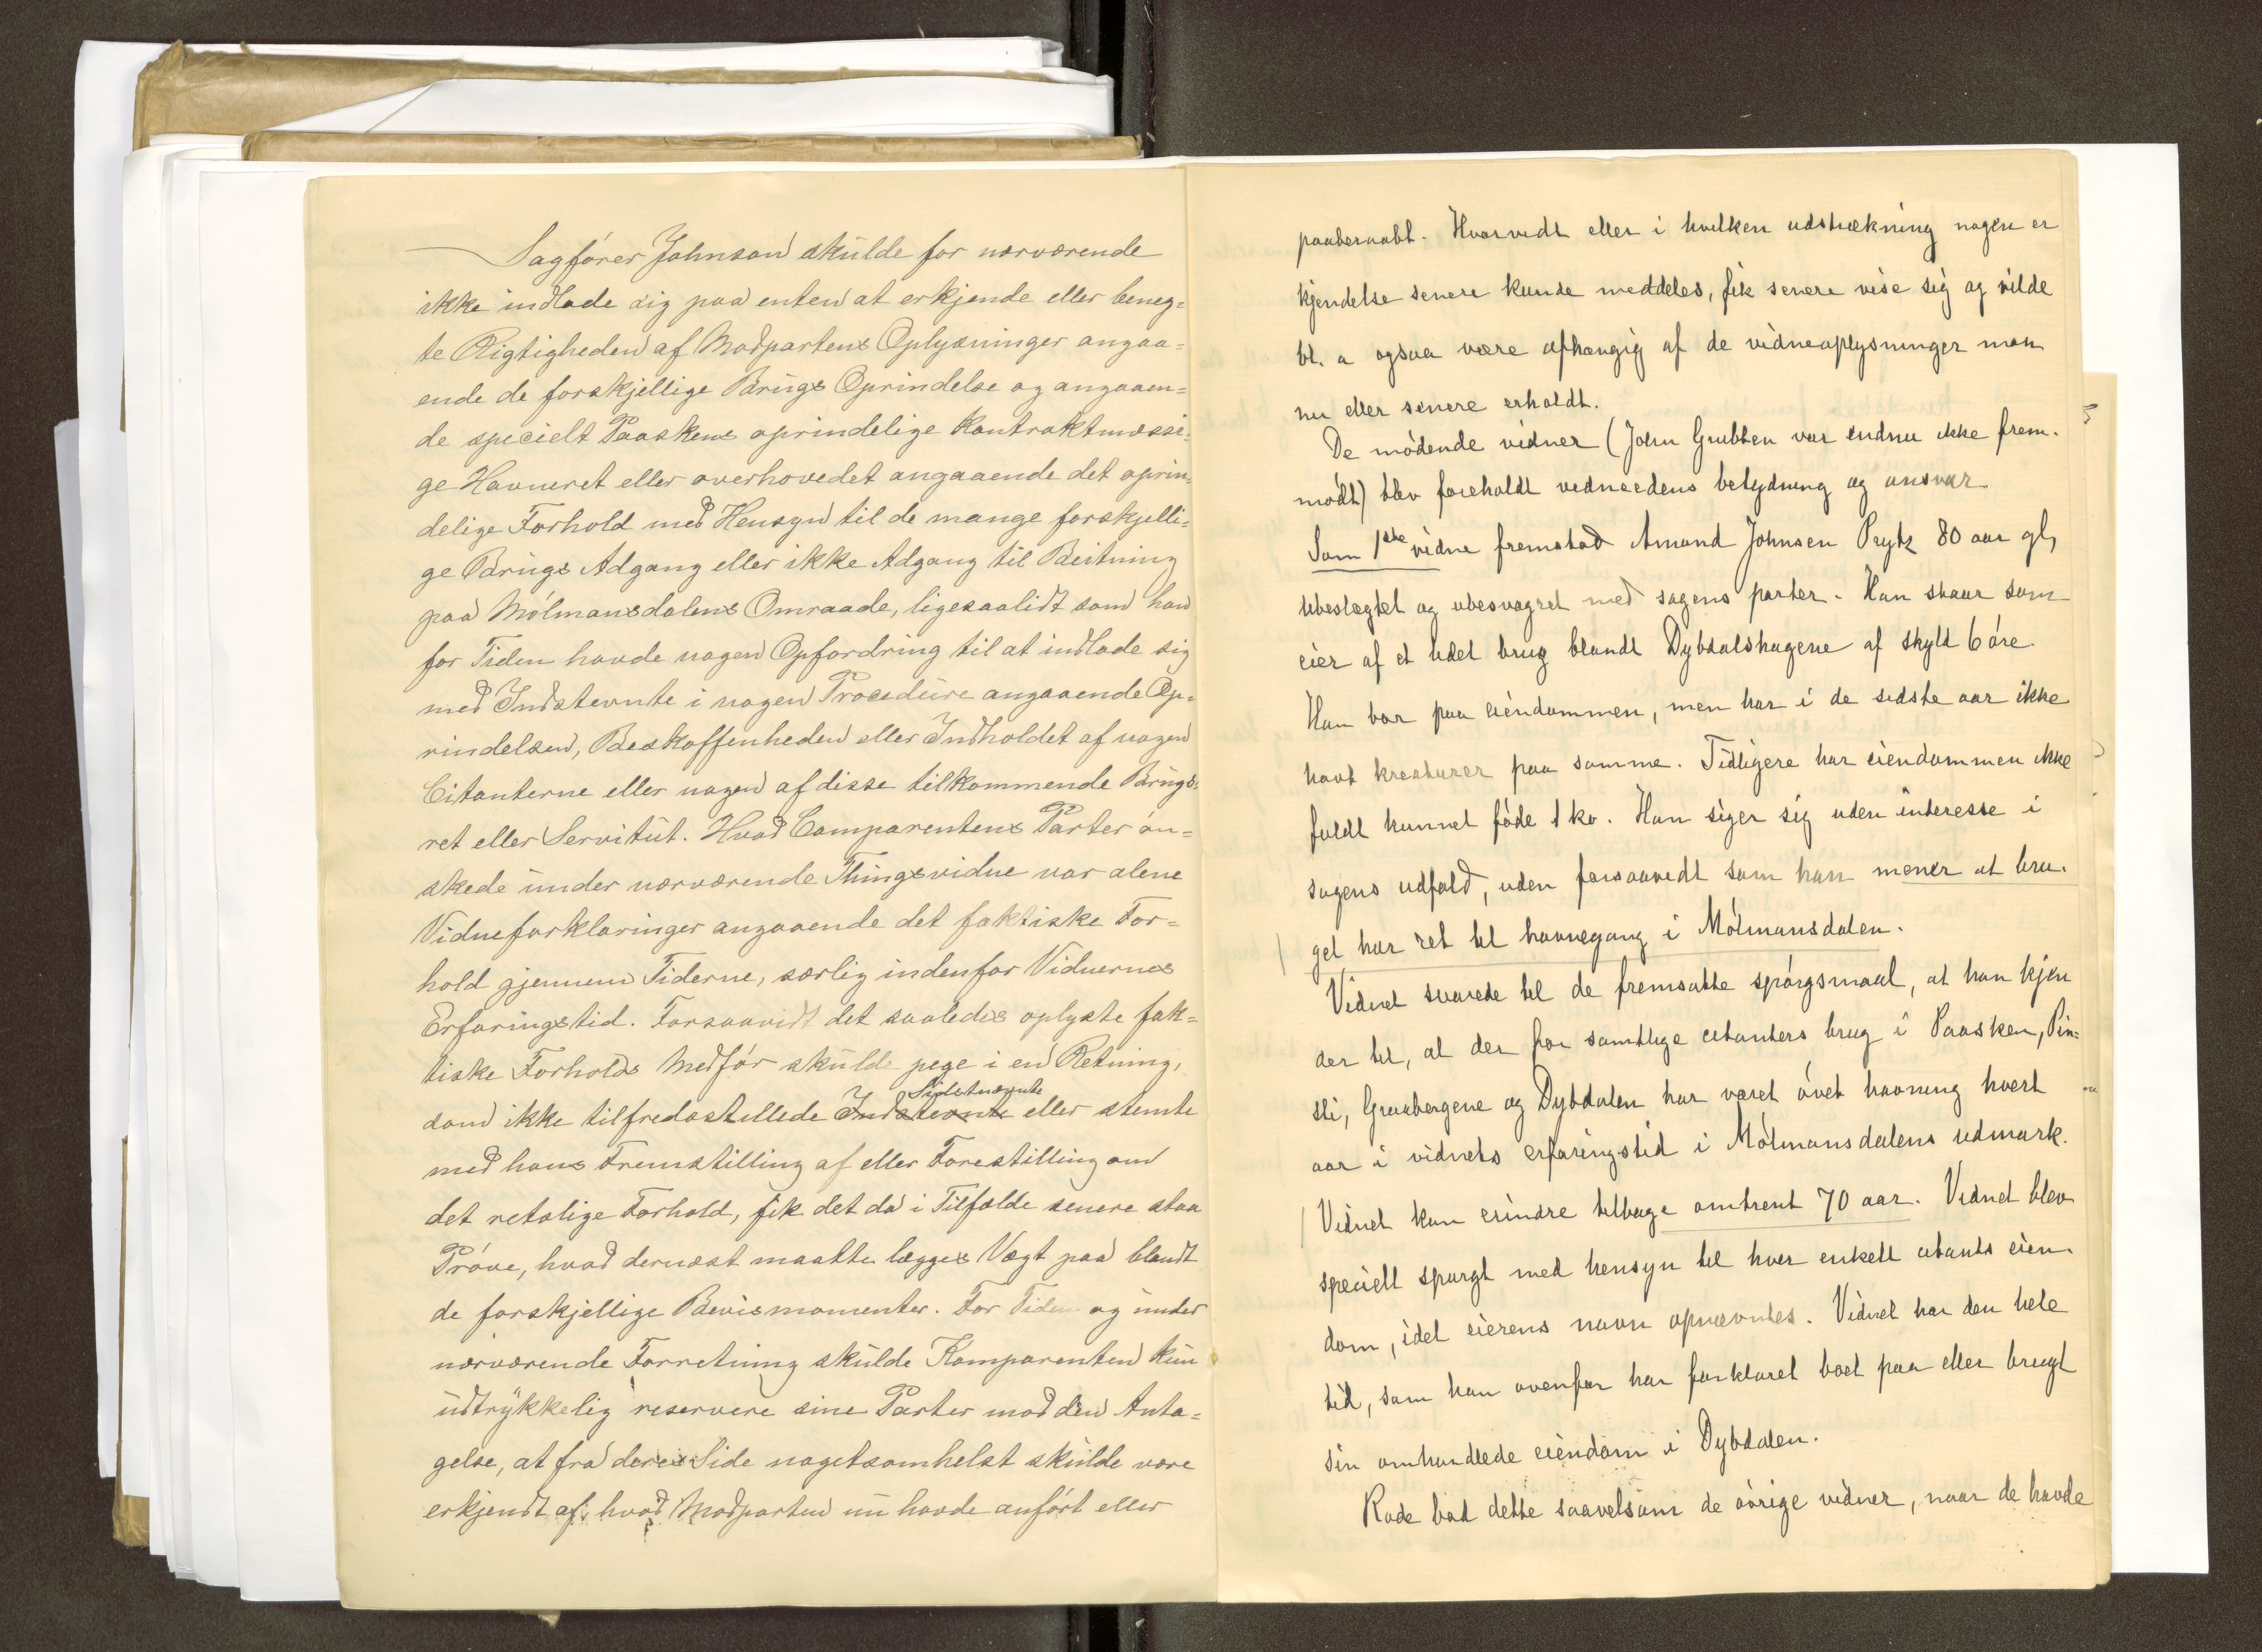 Sagfører Johnson skulde for nærværende
ikke indlade sig paa enten at erkjende eller beneg=
te Rigtigheden af Modpartens Oplysninger angaa=
ende de forskjellige Brugs Oprindelse og angaaen=
de specielt Paaskens oprindelige kontraktmæssi=
ge Havneret eller overhovedet angaaende det oprin=
delige Forhold med Hensyn til de mange forskjelli=
ge Brugs Adgang eller ikke Adgang til Beitning
paa Mølmansdalens Omraade, ligesaalidt som han
for Tiden havde nogen Opfordring til at indlade sig
med Indstevnte i nogen Procedure angaaende Op=
rindelsen, Beskaffenheden eller Indholdet af nogen
Citanterne eller nogen af disse tilkommende Brugs=
ret eller Servitut. Hvad Comparentens Parter øn=
skede under nærværende Thingsvidne var alene
Vidneforklaringer angaaende det faktiske For=
hold gjennem Tiderne, særlig indenfor Vidnernes
Erfaringstid. Forsaavidt det saaledes oplyste fak=
tiske Forholds Medfør skulde pege i en Retning,
som ikke tilfredsstillede Indstevnte Sidstnævnte eller stemte
med hans Fremstilling af eller Forestilling om
det retslige Forhold, fik det da i Tilfælde senere staa
Prøve, hvad dernæst maatte lægges Vægt paa blandt
de forskjellige Bevismomenter. For Tiden og under
nærværende Forretning skulde Komparenten kun
udtrykkelig reservere sine Parter mod den Anta=
gelse, at fra deres Side nogetsomhelst skulde være
erkjendt af, hvad Modparten nu havde anført eller
paaberaabt. Hvorvidt eller i hvilken udstrækning nogen er
kjendelse senere kunde meddeles, fik senere vise sig og vilde
bl. a ogsaa være afhængig af de vidneoplysninger man
nu eller senere erholdt.
De mødende vidner (John Grubben var endnu ikke frem-
mødt) blev foreholdt vedneedens betydning og ansvar.
Som 1ste vidne fremstod Amund Johnsen Prytz 80 aar gl,
ubeslegtet og ubesvogret med sagens parter. Han staar som
eier af et lidet brug blandt Dybdalshagene af skyld 6 øre.
Han bor paa eiendommen, men har i de sidste aar ikke
havt kreaturer paa samme. Tidligere har eiendommen ikke
fuldt kunnet føde 1 ko. Han siger sig uden interesse i
sagens udfald, uden forsaavidt som han mener at bru-
get har ret til havnegang i Mølmansdalen.
Vidnet svarede til de fremsatte spørgsmaal, at han kjen
der til, at der for samtlige citanters brug i Paasken, Pin=
sli, Graabergene og Dybdalen har været øvet havning hvert
aar i vidnets erfaringstid i Mølmansdalens udmark.
Vidnet kan erindre tilbage omtrent 70 aar. Vidnet blev
specielt spurgt med hensyn til hver enkelt citants eien-
dom, idet eierens navn opnævntes. Vidnet har den hele
tid, som han ovenfor har forklaret boet paa eller brugt
sin omhandlede eiendom i Dybdalen.
Rode bad dette saavelsom de øvrige vidner, naar de havde